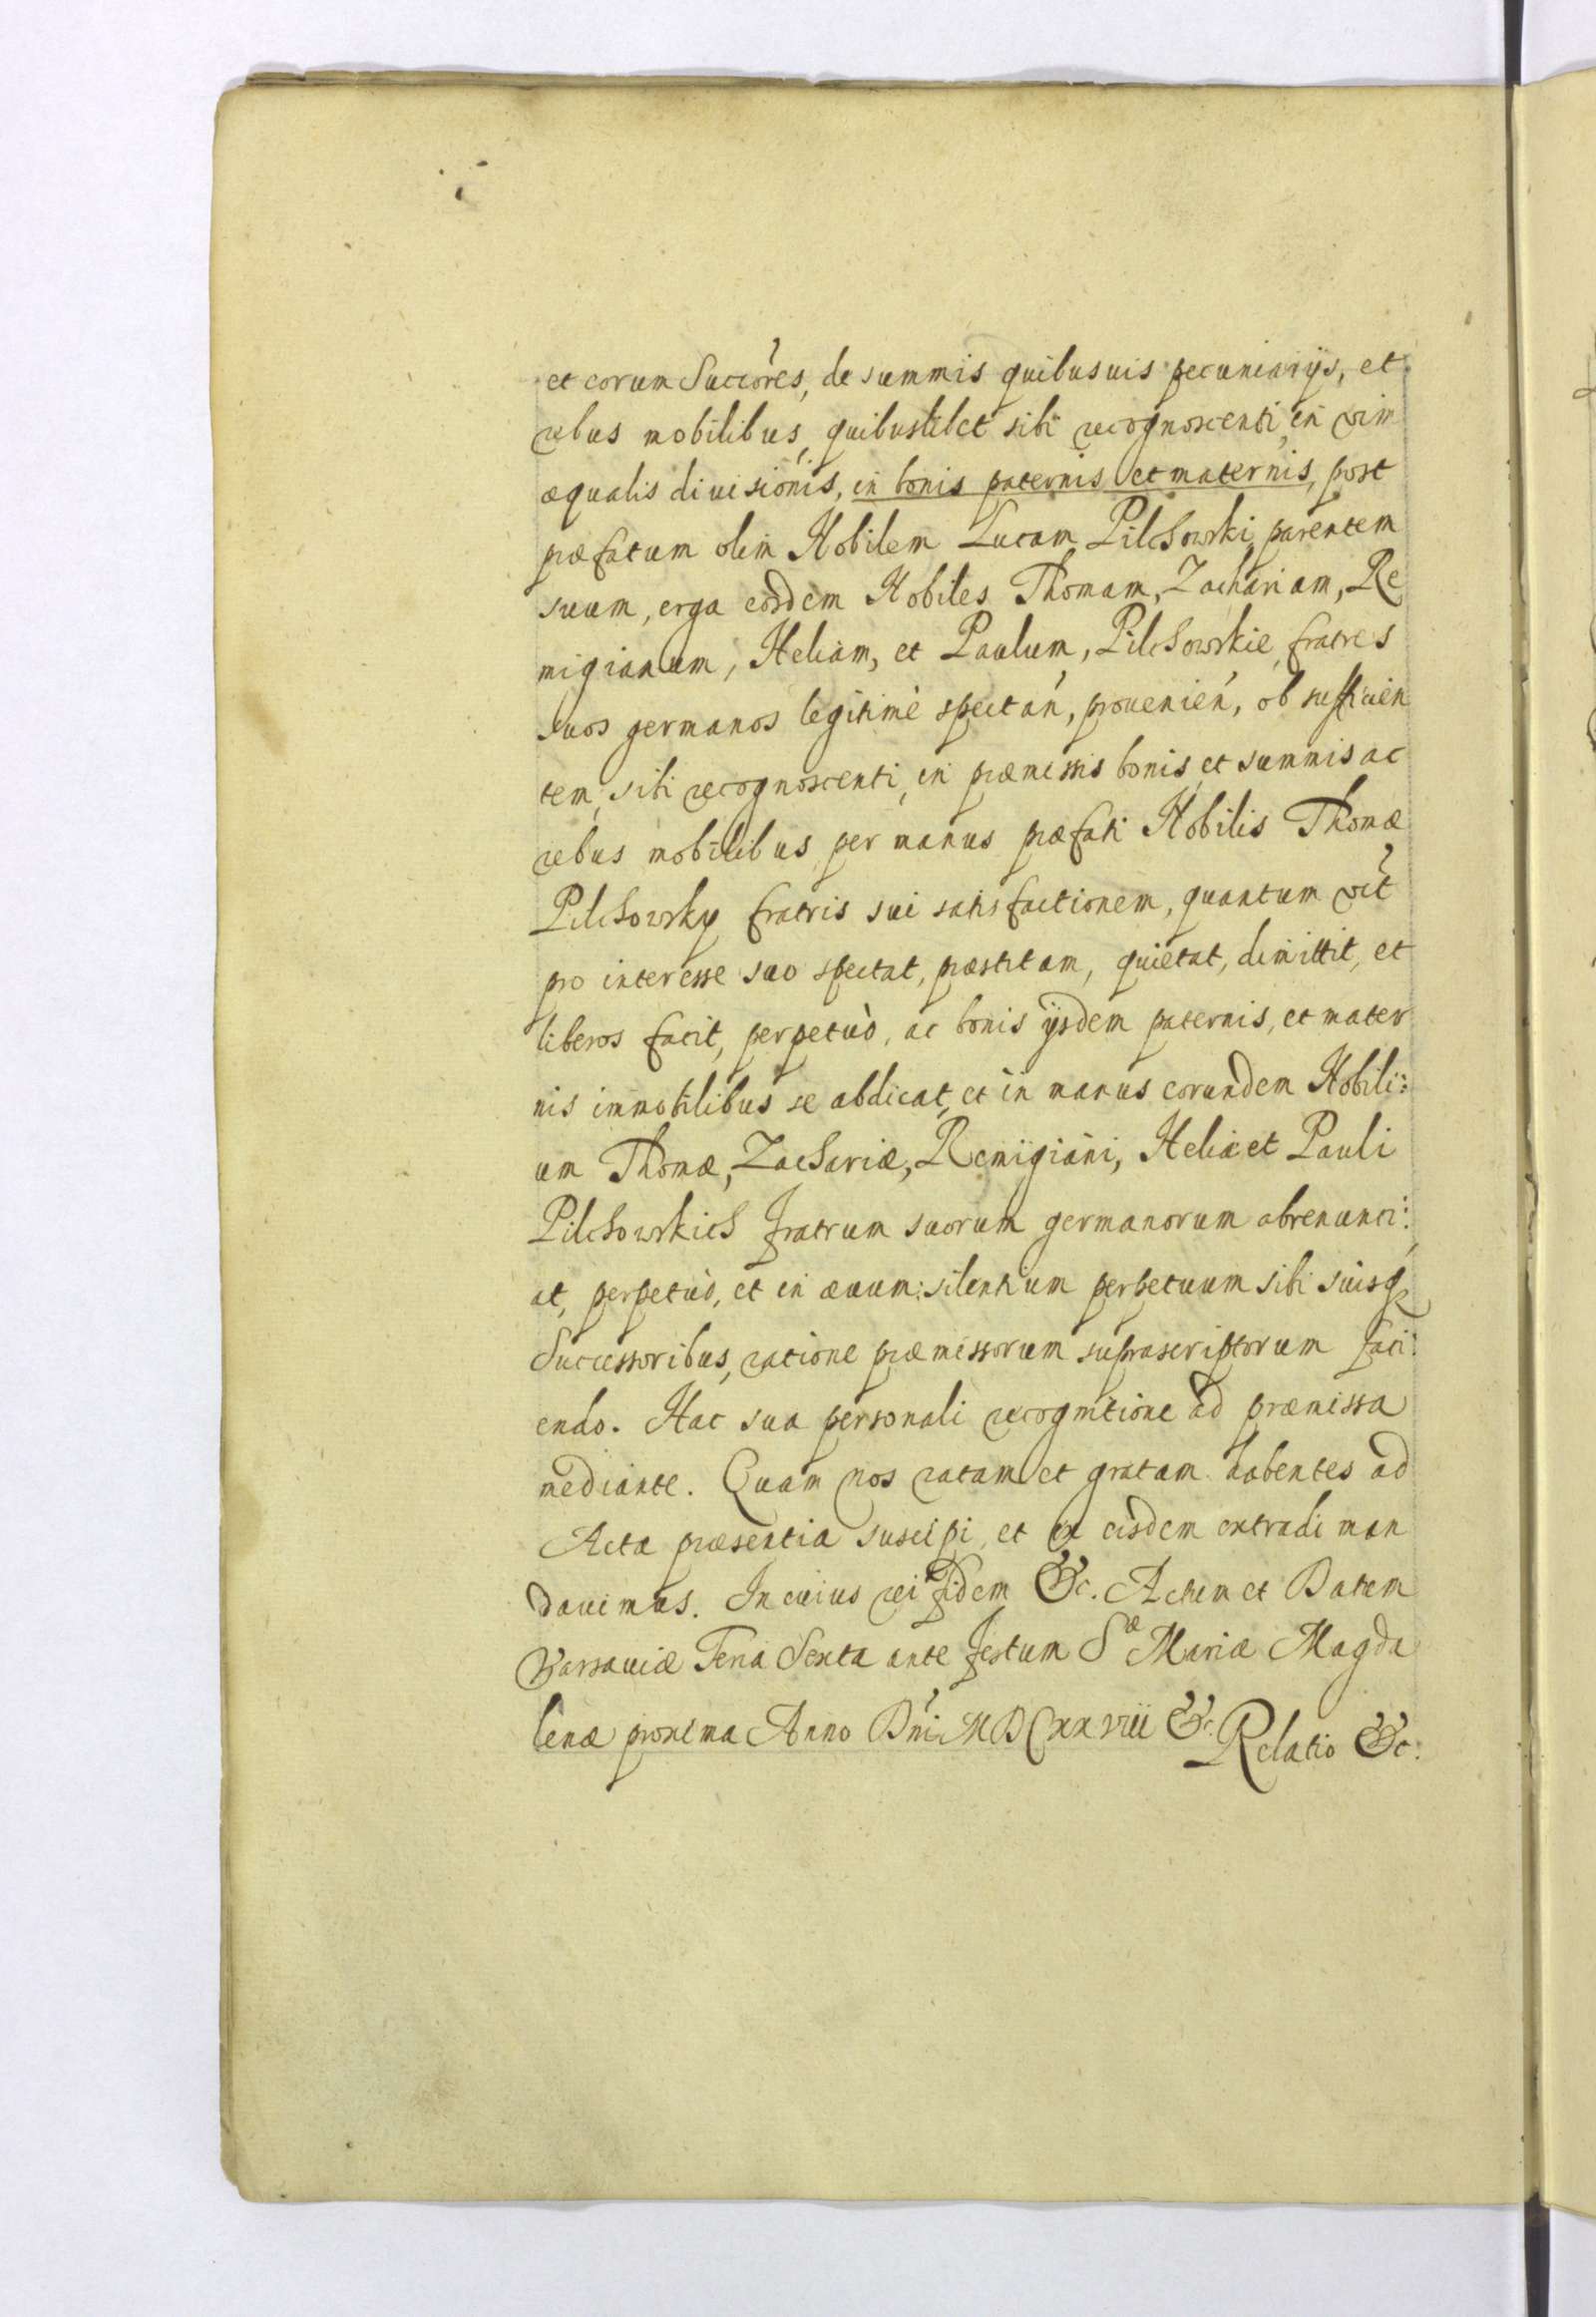 et eorum Succõres, de summis quibusuis pecuniarijs, et
rebus mobilibus, quibuslibet sibi recognoscenti, in vim
æqualis diuisionis, in bonis paternis et maternis, post
præfatum olim Nobilem Lucam Pilchowski, parentem
suum, erga eosdem Nobiles Thomam, Zachariam, Re
migianum, Heliam, et Paulum, Pilchowskie, fratres
suos germanos legitimè spectan̄, prouenien̄, ob sufficien
tem, sibi recognoscenti, in præmissis bonis, et summis ac
rebus mobilibus per manus præfati Nobilis Thomæ
Pilchowsky fratris sui satisfactionem, quantum vt̃
pro interesse suo spectat, præstitam, quietat, dimittit, et
liberos facit, perpetuò, ac bonis ijsdem paternis, et mater
nis immobilibus se abdicat, et in manus eorundem Nobili:
um Thomæ, Zachariæ, Remigiani, Heliæ et Pauli
Pilchowskich fratrum suorum germanorum abrenunci:
at, perpetuò, et in æuum: silentium perpetuum sibi suisq;
Successoribus, ratione præmissorum suprascriptorum faci:
endo. Hac sua personali recognitione ad præmissa
mediante. Quam nos ratam et gratam habentes ad
Acta præsentia suscipi, et ex eisdem extradi man
dauimus. In cuius rei fidem &c. Actum et Datum
Varsauiæ Feria Sexta ante festum Sæ Mariæ Magda
lenæ proxima Anno Dñi MDCxxviii &c. Relatio &c.